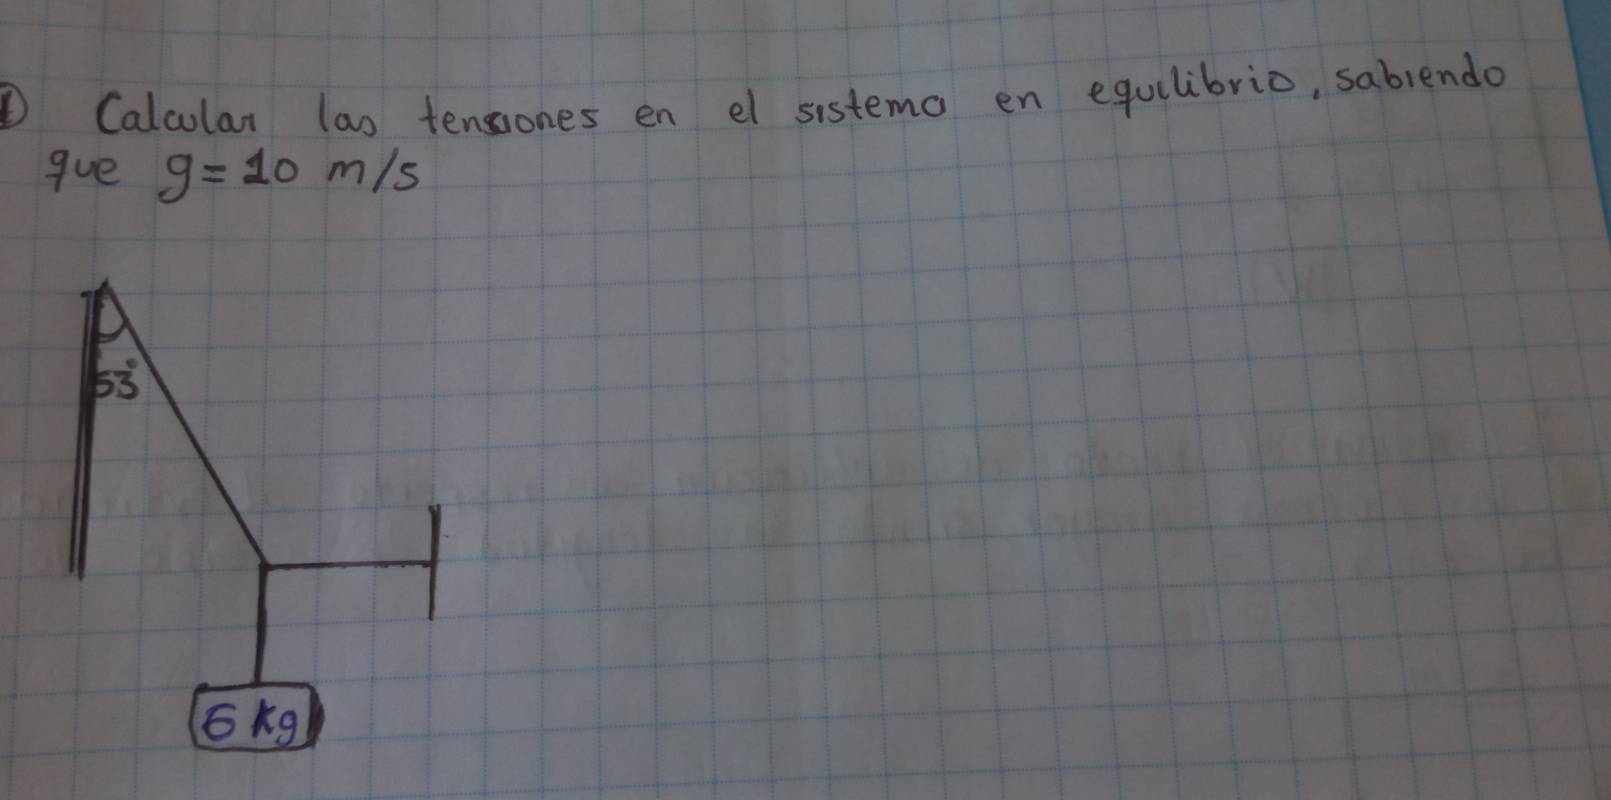 ① Calcular las tensiones en el sistema en equilibrio, sabiendo
que g = 10 m/s
53°
6 kg